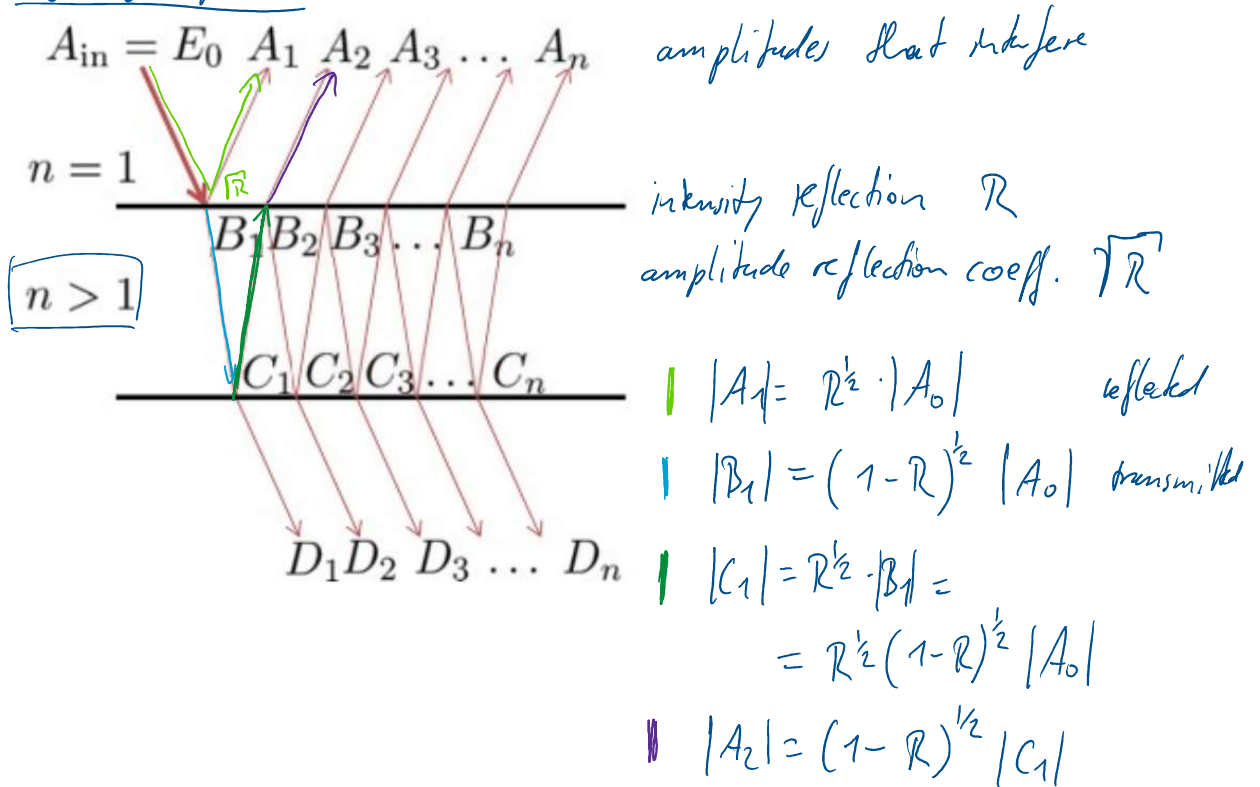 A_in = E_0 A_1 A_2 A_3 ... A_n
amplitudes that interfere
n = 1
√R
intensity reflection R
B_1 B_2 B_3 ... B_n
amplitude reflection coeff. √R
n > 1
C_1 C_2 C_3 ... C_n
|A_1| = R^½ · |A_0| reflected
|B_1| = (1-R)^½ |A_0| transmitted
D_1 D_2 D_3 ... D_n
|C_1| = R^½ · |B_1| =
= R^½ (1-R)^½ |A_0|
|A_2| = (1-R)^1/2 |C_1|